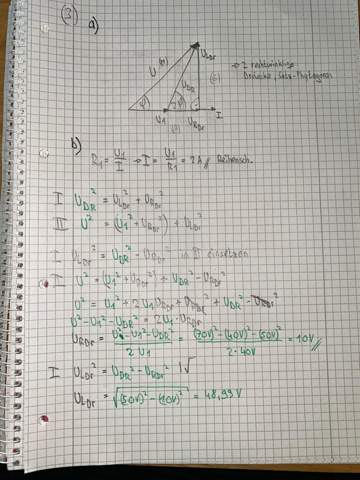 (3) a)
U (H)
U_LDr
(G)
⇒ 2 rechtwinklige
Dreiecke, Satz Phytagoras
φ
U_DR
U1
U_RDr
I
b)
R1 = U1/I ⇒ I = U1/R1 = 2A // Reihensch.
I U_DR² = U_LDr² + U_RDr²
II U² = (U1² + U_RDr²) + U_LDr²
I U_LDr² = U_DR² - U_RDr² in II einsetzen
I U² = (U1² + U_RDr²) + U_DR² - U_RDr²
U² = U1² + 2 U1 U_RDr + U_RDr² + U_DR² - U_RDr²
U² - U1² - U_DR² = 2 U1 · U_RDr
U_RDr = (U² - U1² - U_DR²)/(2 U1) = ((70V)² - (40V)² - (50V)²)/(2 · 40V) = 10V //
I U_LDr² = U_DR² - U_RDr² |√
U_LDr = √((50V)² - (10V)²) = 48,99 V